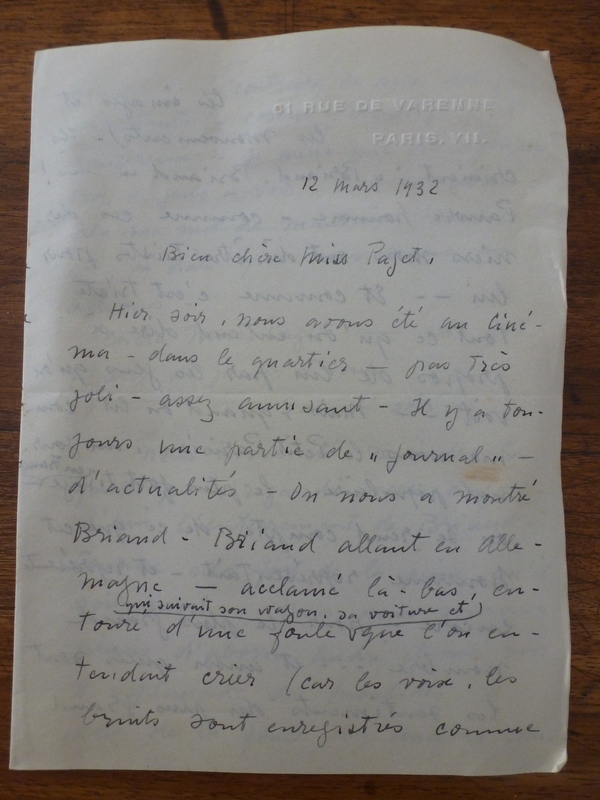 61 RUE DE VARENNE
PARIS. VII.
12 mars 1932
Bien chère Miss Paget,
Hier soir, nous avons été au Ciné-
ma - dans le quartier — pas très
joli - assez amusant - Il y a tou-
jours une partie de „ journal " —
d'actualités - On nous a montré
Briand - Briand allant en Alle-
magne — acclamé là-bas, en-
qui suivait son wagon, sa voiture et
touré d'une foule que l'on en-
tendait crier (car les voix, les
bruits sont enregistrés comme